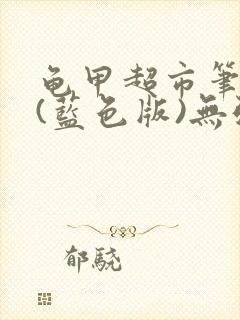 龟甲超市筆
(藍色版)無
郁驍